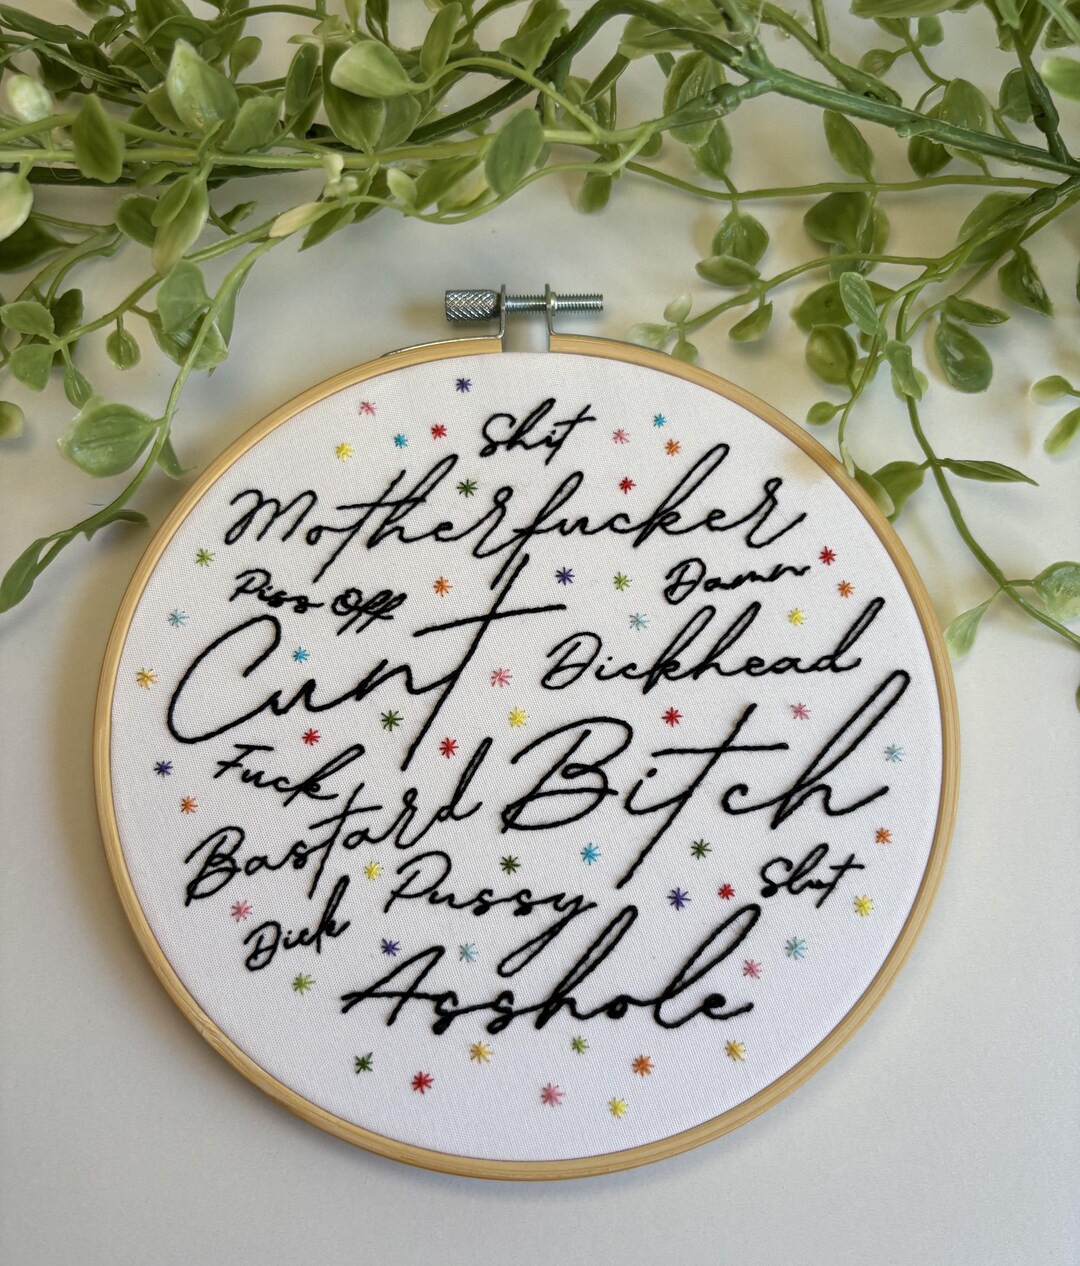 Shit
Motherfucker
Piss Off
Damn
Cunt
Dickhead
Fuck
Bitch
Bastard
Pussy
Slut
Dick
Asshole